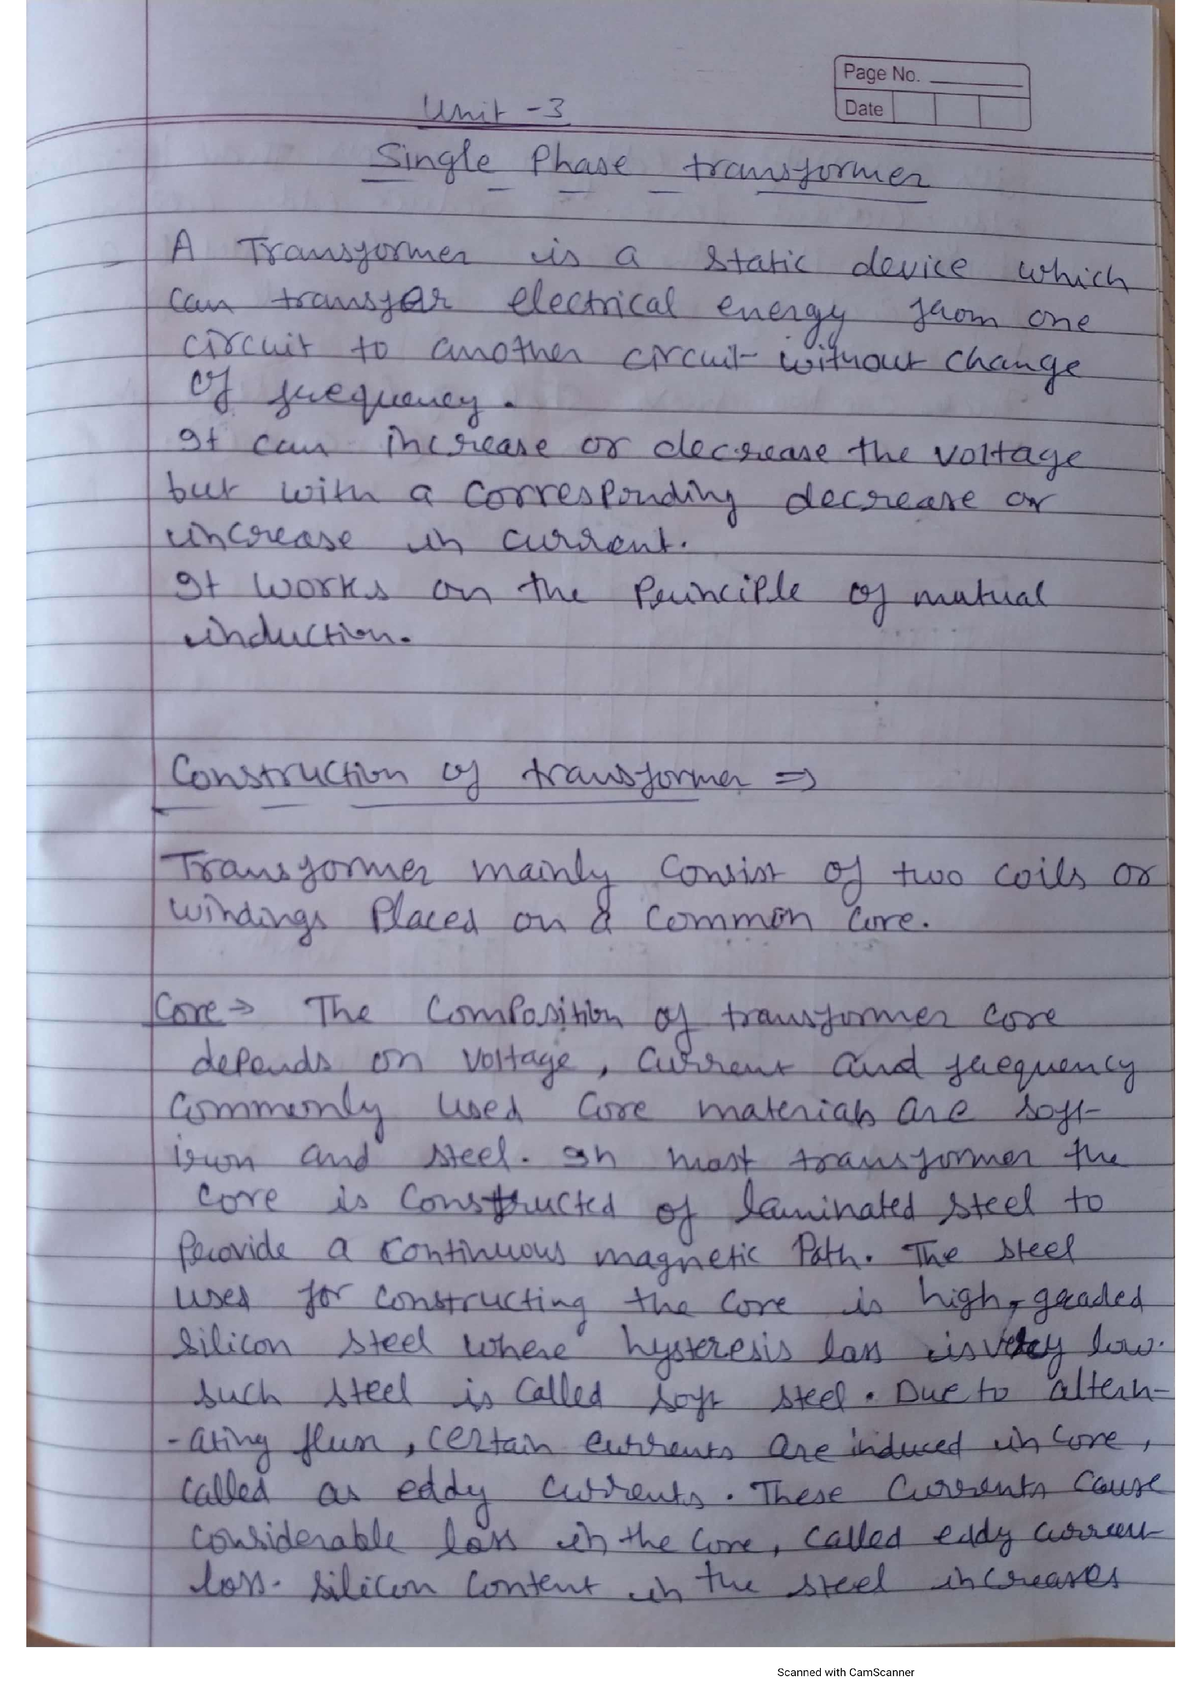 Page No.
Date
Unit - 3
Single Phase transformer
A Transformer is a static device which
can transfer electrical energy from one
circuit to another circuit without change
of frequency.
It can increase or decrease the voltage
but with a corresponding decrease or
increase in current.
It works on the Principle of mutual
induction.
Construction of transformer ⇒
Transformer mainly consist of two coils or
windings Placed on a common core.
Core → The Composition of transformer core
depends on voltage, current and frequency
commonly used core materials are soft
iron and steel. In most transformer the
core is constructed of laminated steel to
Provide a continuous magnetic Path. The steel
used for constructing the core is high, graded
silicon steel where hysteresis loss is very low.
such steel is called soft steel. Due to altern-
-ating flux, certain currents are induced in core,
called as eddy currents. These currents cause
considerable loss in the core, called eddy current
loss. silicon content in the steel increases
Scanned with CamScanner